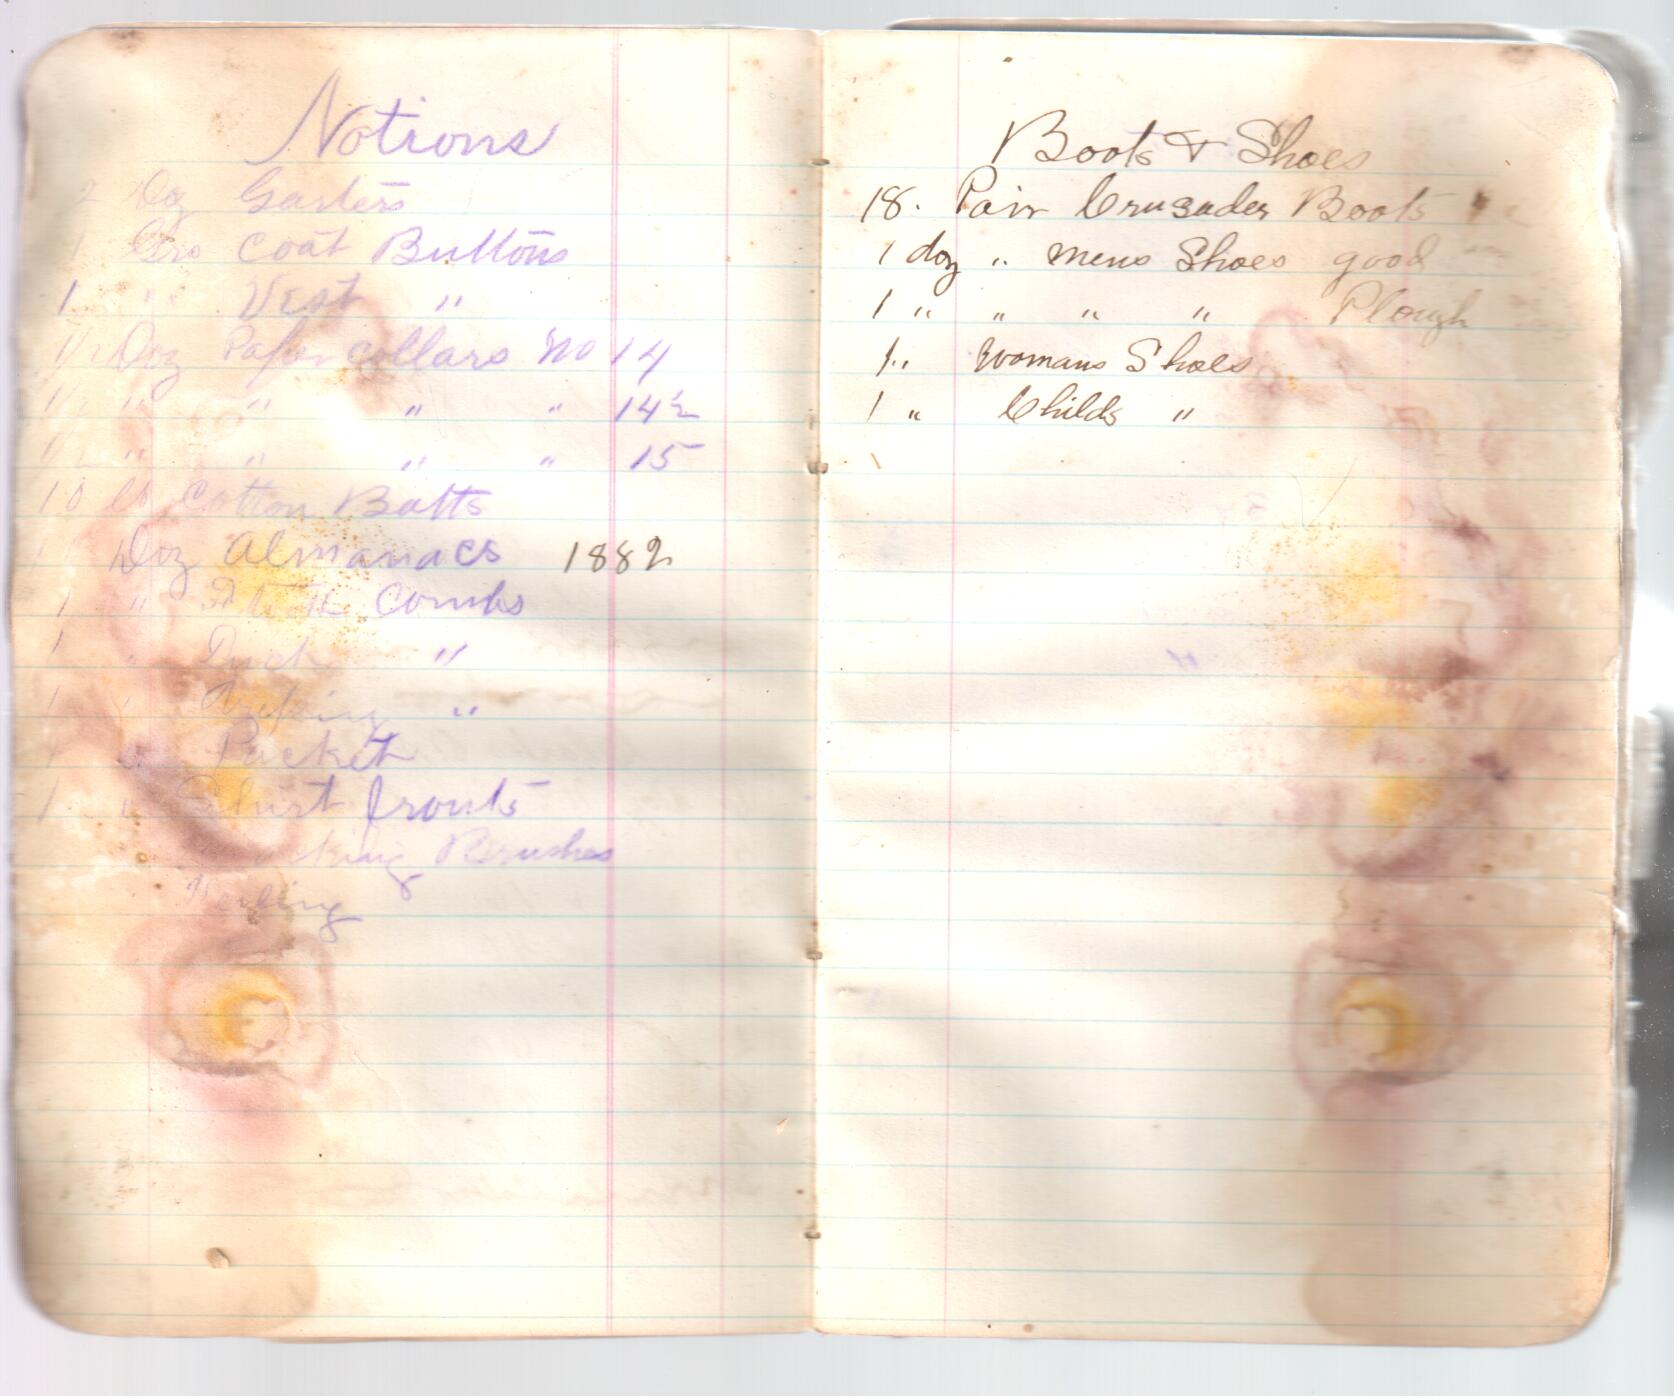 Notions
2 Doz Garters
1 Gro Coat Buttons
1 " Vest "
1/2 Doz Paper collars No 14
1/2 " " " " 14½
1/2 " " " " 15
10 lb Cotton Batts
Doz Almanacs 1882
1 " Combs
1 " "
1 " "
Packet
1 " Shirt fronts
Brushes
Boots & Shoes
18. Pair Crusader Boots
1 doz " mens Shoes good
1 " " " " Plough
1 " Womans Shoes
1 " Childs "